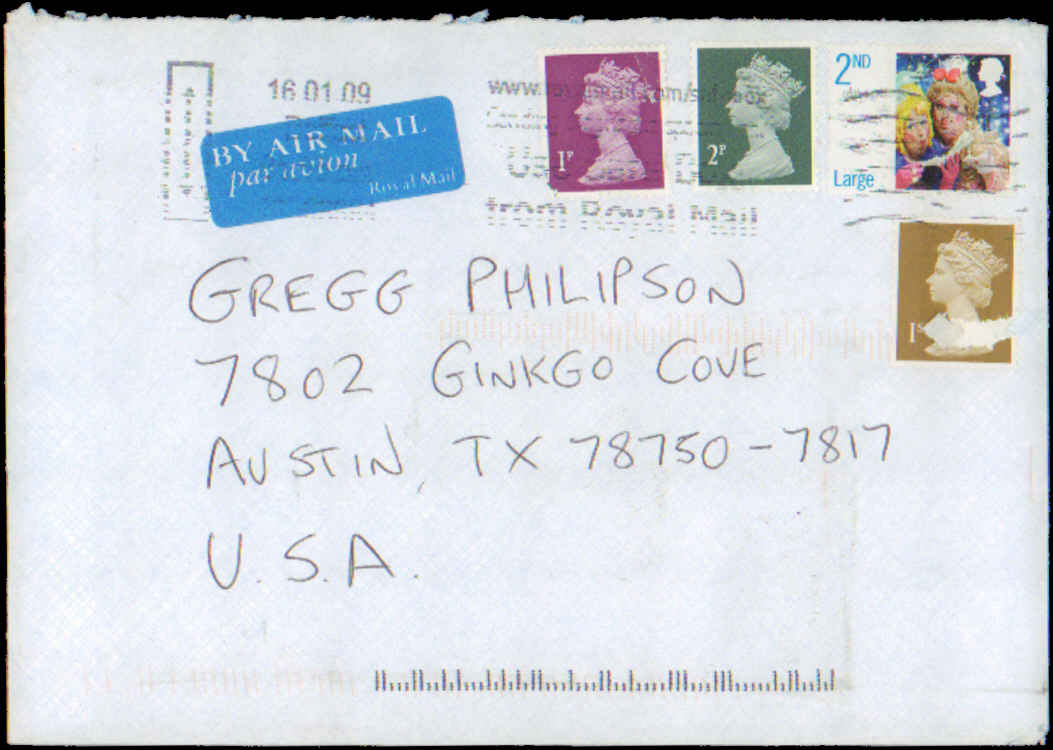 16.01.09
www.
BY AIR MAIL
par avion
Royal Mail
1P
2P
2ND
Large
from Royal Mail
1st
GREGG PHILIPSON
7802 GINKGO COVE
AUSTIN, TX 78750-7817
U.S.A.